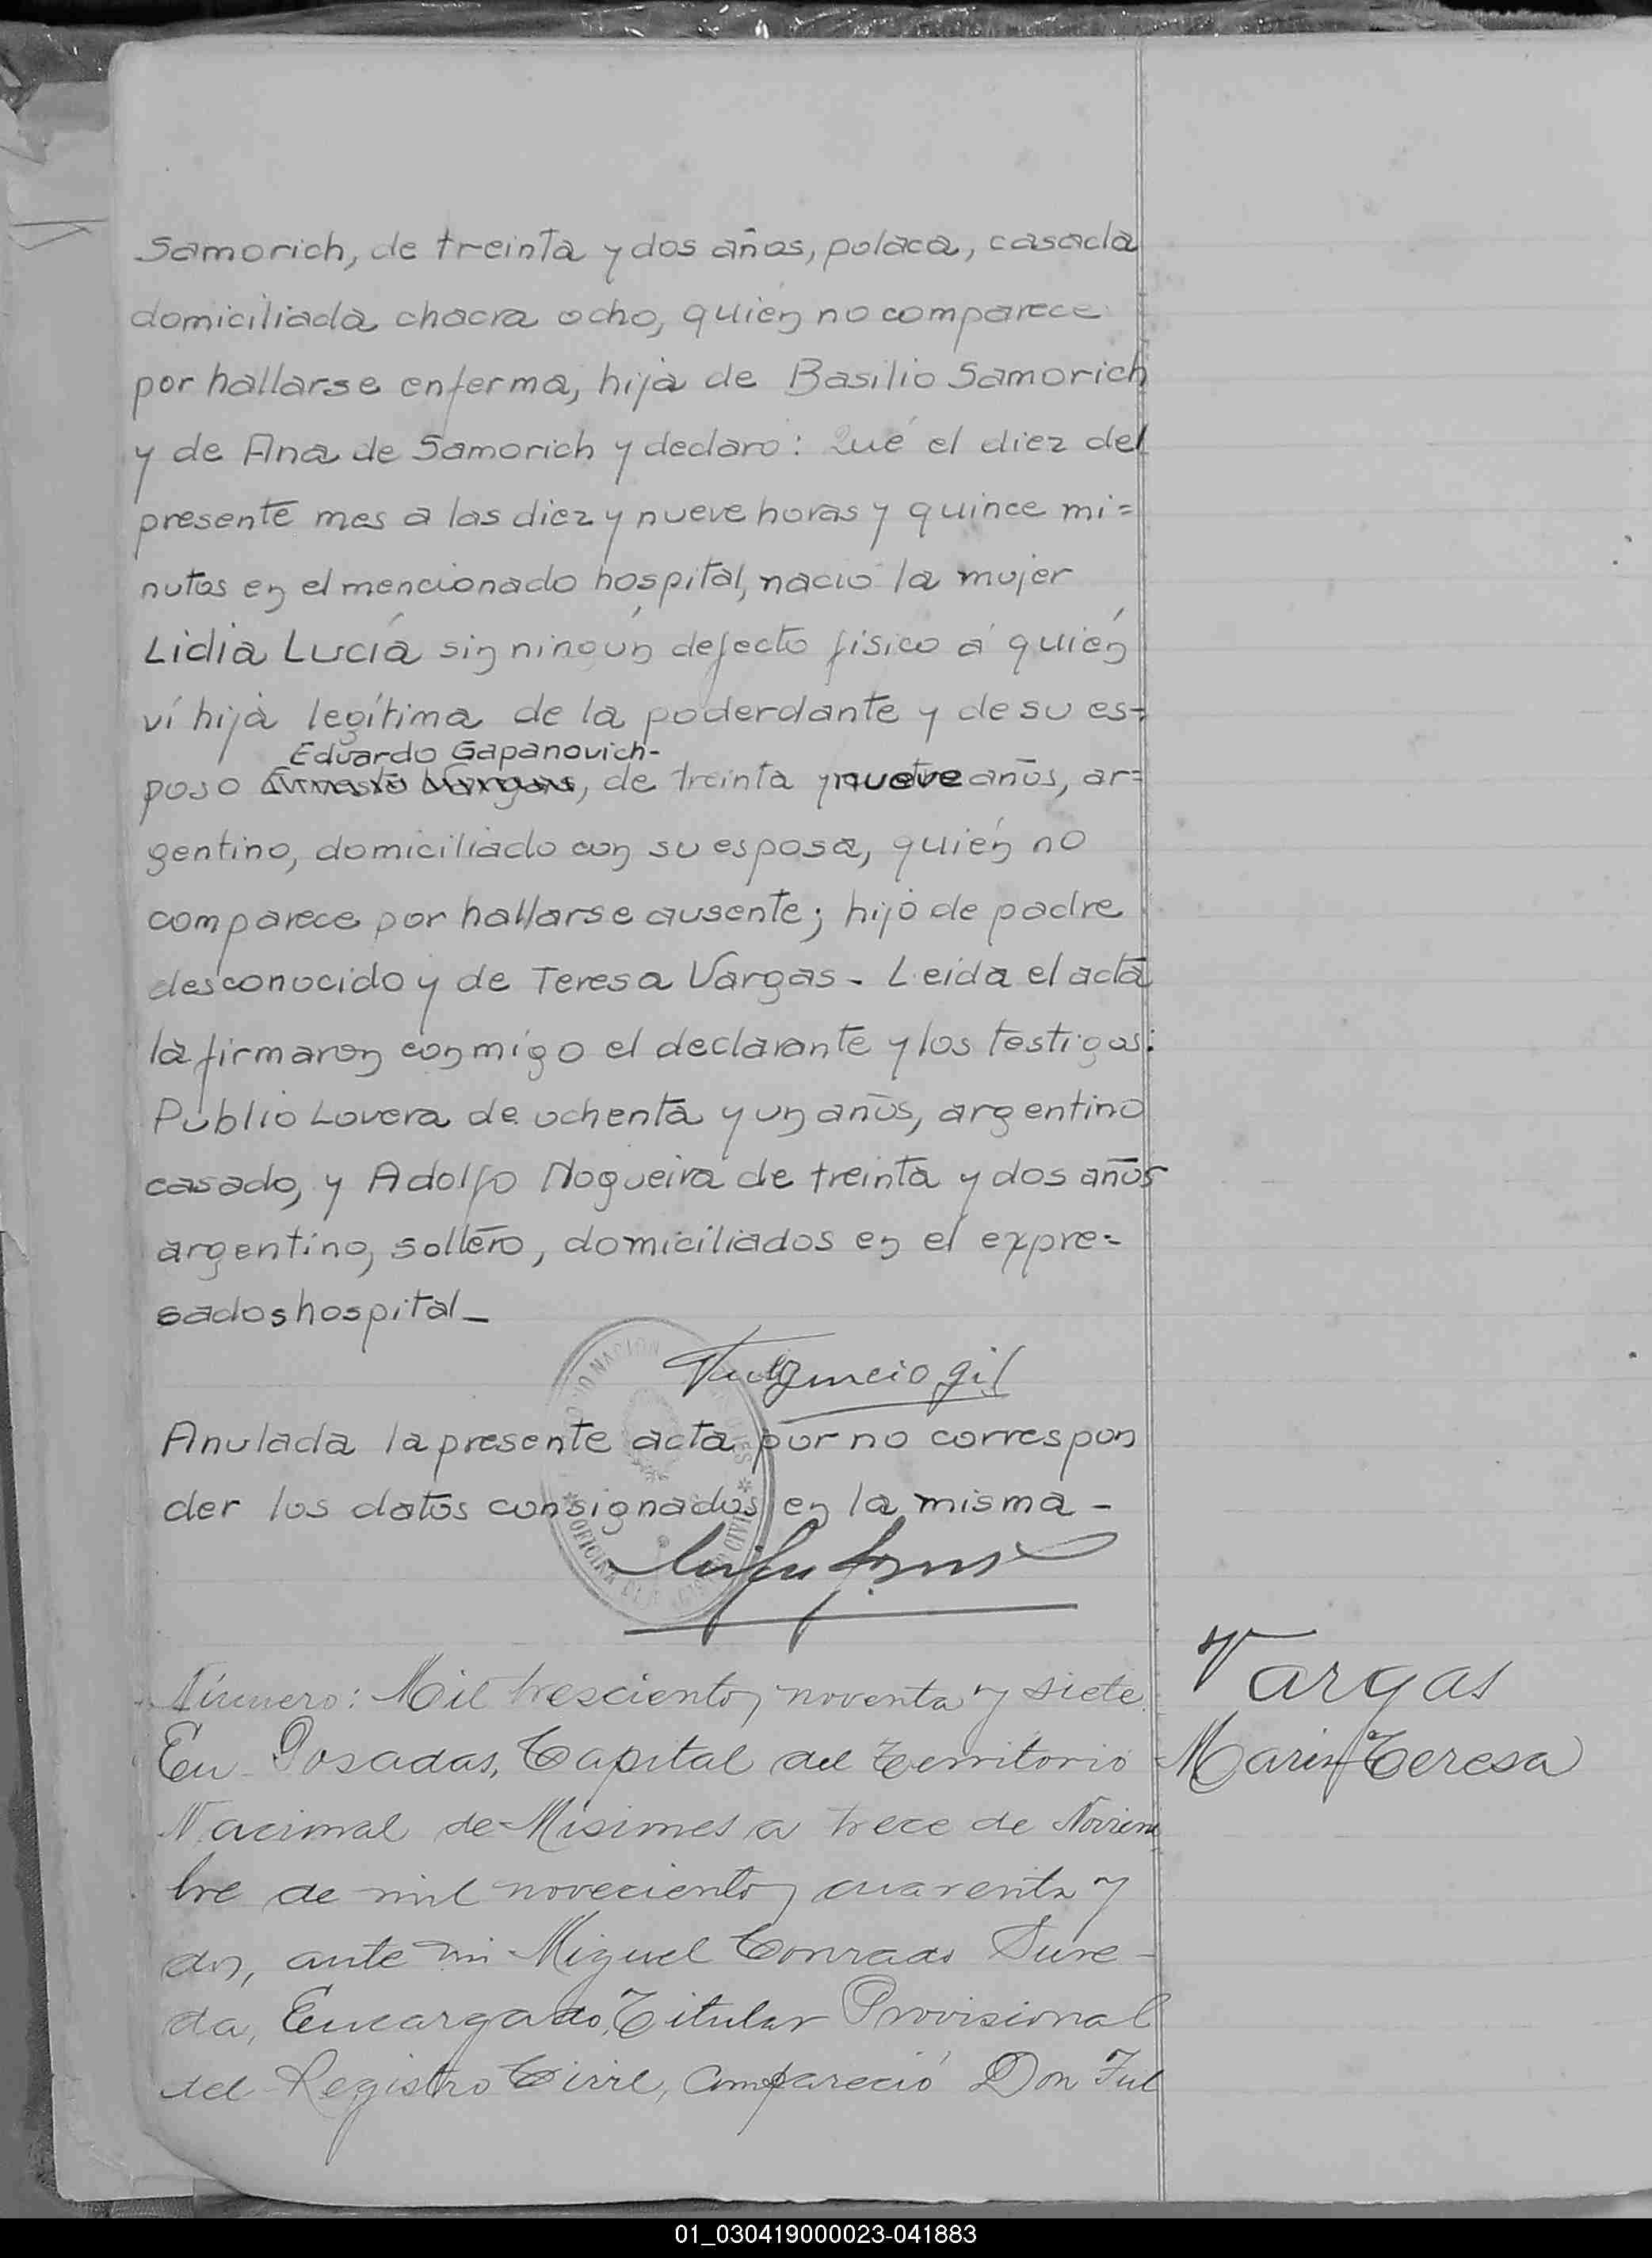 Samorich, de treinta y dos años, polaca, casada
domiciliada chacra ocho, quién no comparece
por hallarse enferma, hija de Basilio Samorich
y de Ana de Samorich y declaro: Qué el diez del
presente mes a las diez y nueve horas y quince mi=
nutos en el mencionado hospital, nació la mujer
Lidia Lucía sin ningún defecto físico á quién
ví hija legítima de la poderdante y de su es=
Eduardo Gapanovich-
poso Ernesto Vargas, de treinta y nueve años, ar=
gentino, domiciliado con su esposa, quién no
comparece por hallarse ausente; hijo de padre
desconocido y de Teresa Vargas - Leída el acta
la firmaron conmigo el declarante y los testigos:
Publio Lovera de ochenta y un años, argentino
casado, y Adolfo Nogueira de treinta y dos años
argentino, soltero, domiciliados en el expre=
sados hospital_
Fulgencio gil
Anulada la presente acta por no correspon
der los datos consignados en la misma -
OFICINA DEL REGISTRO CIVIL
Número: Mil trescientos noventa y siete
Vargas
En Posadas, Capital del Territorio
Maria Teresa
Nacional de Misiones a trece de Noviem
bre de mil novecientos cuarenta y
dos, ante mi Miguel Conrado Sure-
da, Encargado Titular Provisional
del Registro Civil, compareció Don Ful
01_030419000023-041883